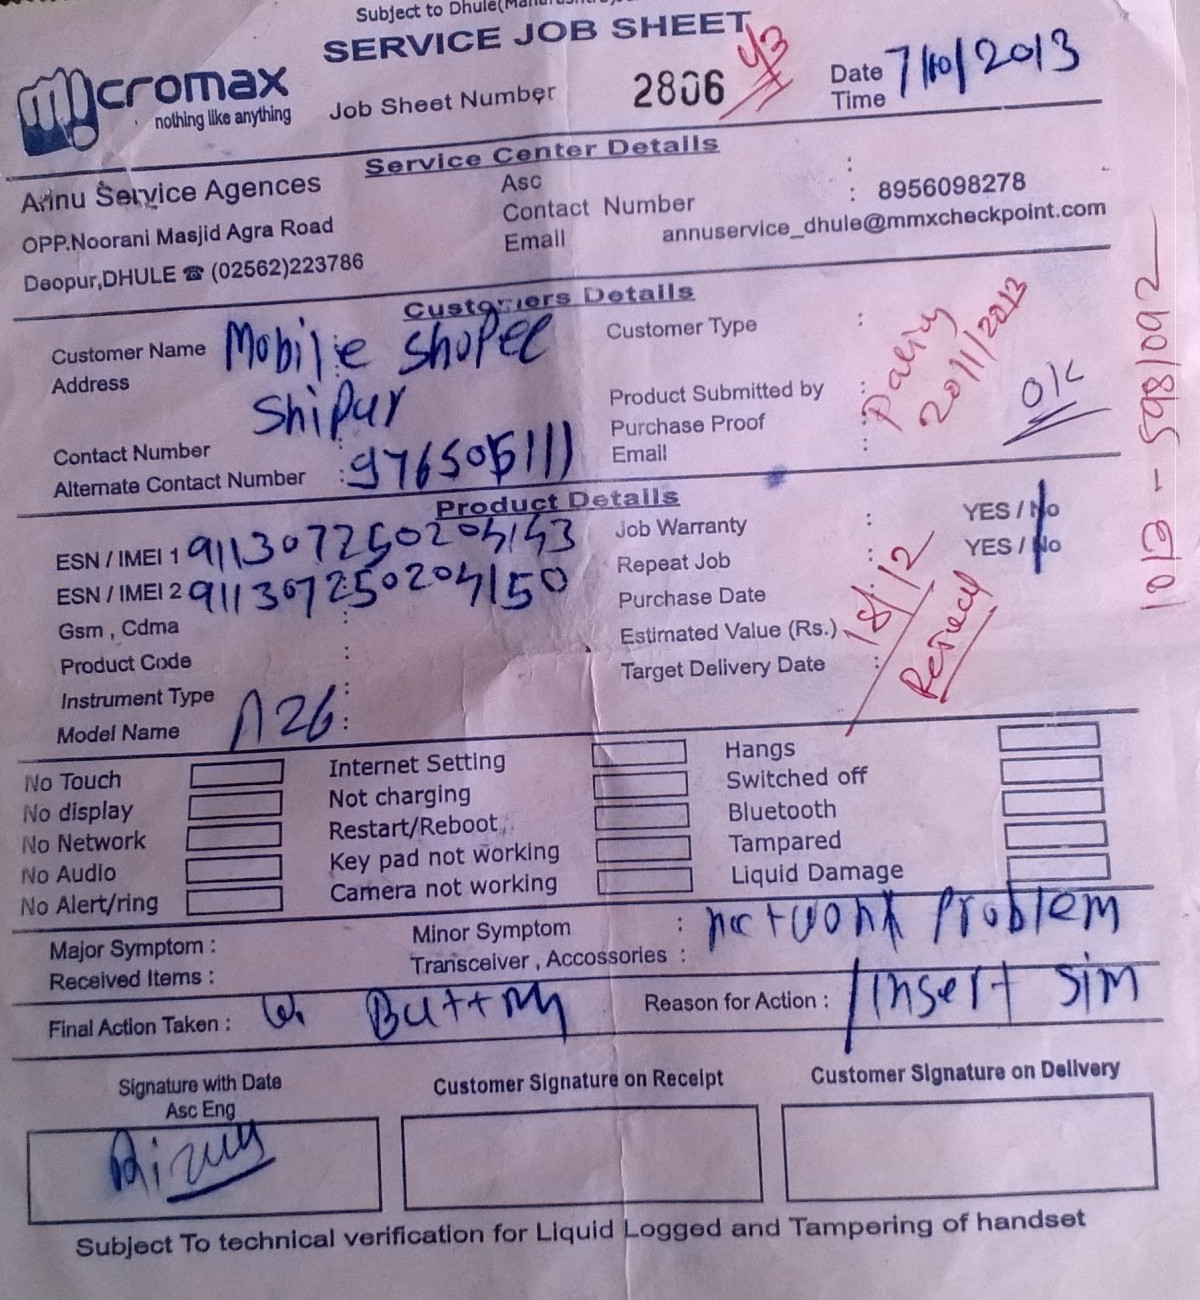 Subject to Dhule
SERVICE JOB SHEET
micromax
nothing like anything
Job Sheet Number 2806
Date 7/10/2013
Time
Service Center Details
Annu Service Agences
OPP.Noorani Masjid Agra Road
Deopur,DHULE ☎ (02562)223786
Asc :
Contact Number : 8956098278
Email annuservice_dhule@mmxcheckpoint.com
Customers Details
Customer Name Mobile Shopee
Address Shipur
Contact Number
Alternate Contact Number :
Customer Type :
Product Submitted by :
Purchase Proof :
Email :
20/11/2013
OK
Product Details
ESN / IMEI 1
ESN / IMEI 2 911307250204150
Gsm , Cdma :
Product Code :
Instrument Type :
Model Name A26 :
Job Warranty : YES / No
Repeat Job : YES / No
Purchase Date
Estimated Value (Rs.)
Target Delivery Date :
18/12
No Touch
No display
No Network
No Audio
No Alert/ring
Internet Setting
Not charging
Restart/Reboot
Key pad not working
Camera not working
Hangs
Switched off
Bluetooth
Tampared
Liquid Damage
Major Symptom :
Minor Symptom : network Problem
Received Items :
Transceiver , Accossories :
Final Action Taken :
Reason for Action : /Insert Sim
Signature with Date
Asc Eng
Customer Signature on Receipt
Customer Signature on Delivery
Subject To technical verification for Liquid Logged and Tampering of handset